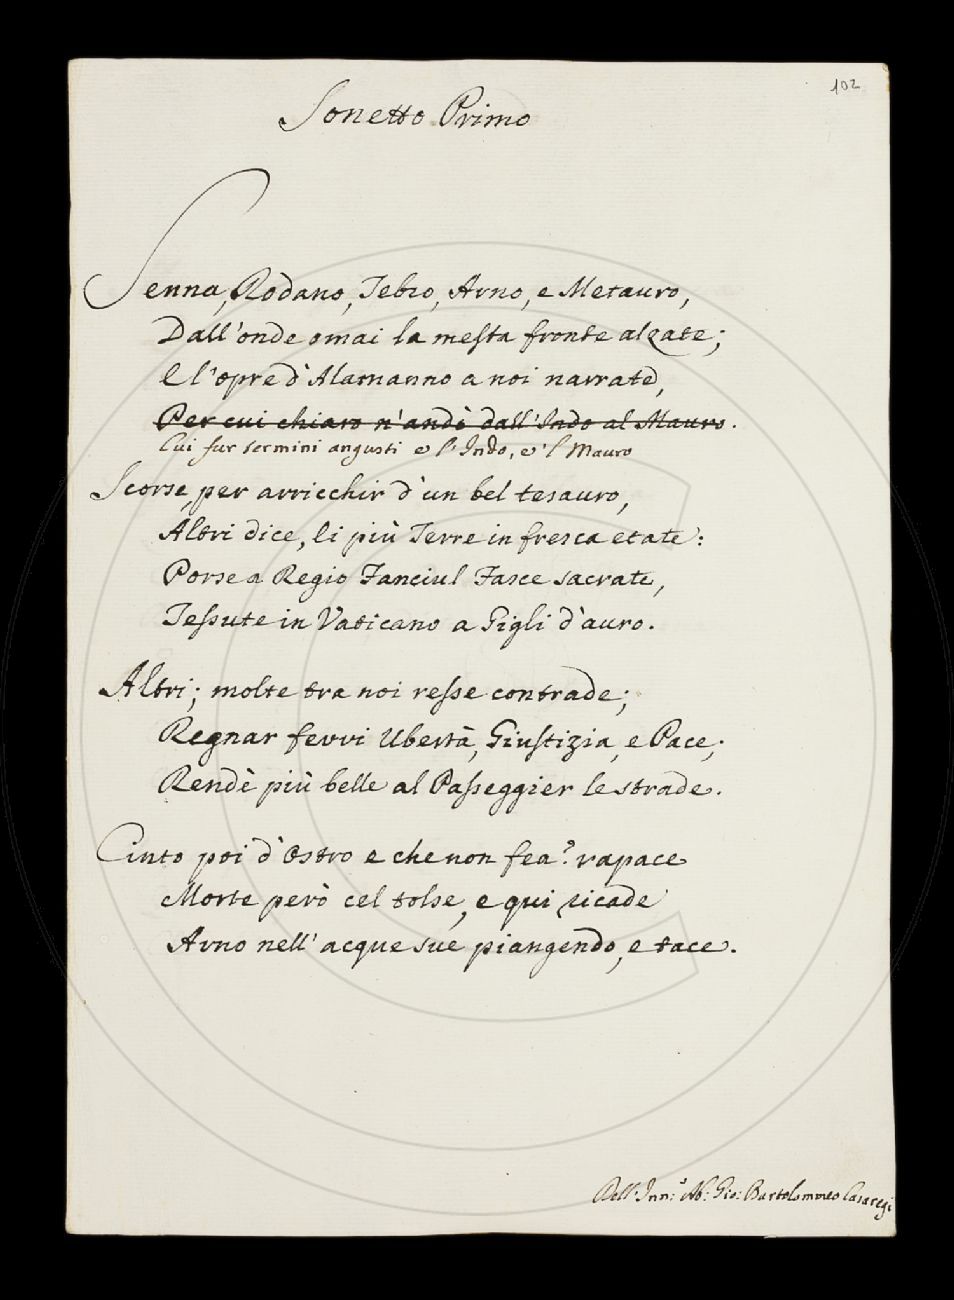 102
Sonetto Primo
Senna, Ròdano, Tebro, Arno, e Metauro,
Dall'onde omai la mesta fronte alzate;
E l'opre d'Alamanno a noi narrate,
Per cui chiaro n'andò dall'Indo al Mauro.
Cui fur termini angusti e l'Indo, e 'l Mauro
Scorse, per arricchir d'un bel tesauro,
Altri dice, li più Terre in fresca etate:
Porse a Regio Fanciul Fasce sacrate,
Tessute in Vaticano a Gigli d'auro.
Altri; molte tra noi resse contrade;
Regnar fevvi Ubertà, Giustizia, e Pace;
Rendè più belle al Passeggier le strade.
Cinto poi d'Ostro e che non fea? rapace
Morte però cel tolse, e qui ricade
Arno nell'acque sue piangendo, e tace.
Dell: Inn: Ab: Gio: Bartolommeo Casaregi